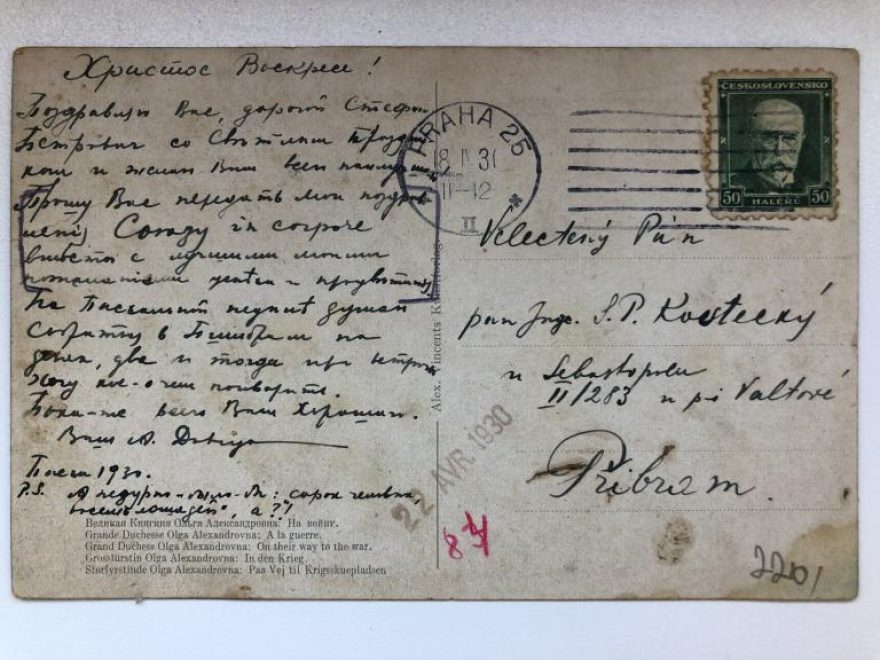 Христос Воскресе!
Поздравляю Вас, дорогой Стефан
Петрович со Светлым Праздни
ком и желаю Вам всего наилучш
Прошу Вас передать мои поздрав
ления Союзу
вместе с лучшими моими
пожеланиями
На Пасхальной неделе думаю
в Пшибрам на
денек, два и тогда при встрече
хочу кое-о чем поговорить.
Пока-же всего Вам Хорошаго.
Ваш А.
Пасха 1930.
P.S. А недурно было-бы: "сорок человек,
восемь лошадей", а?!
Великая Княгиня Ольга Александровна: На войну.
Grande Duchesse Olga Alexandrovna; A la guerre.
Grand Duchess Olga Alexandrovna: On their way to the war.
Grossfürstin Olga Alexandrovna: In den Krieg
Storfyrstinde Olga Alexandrovna: Paa Vej til Krigsskuepladsen
Alex. Vincents Kunstforlag.
PRAHA 25
II-12
II
ČESKOSLOVENSKO
50 50
HALÉŘŮ
Velectěný Pán
pan Ing. S. P. Kostecký
u Sebastopolu
II/283 u pí Valtové
Příbram.
22 AVR 1930
2201